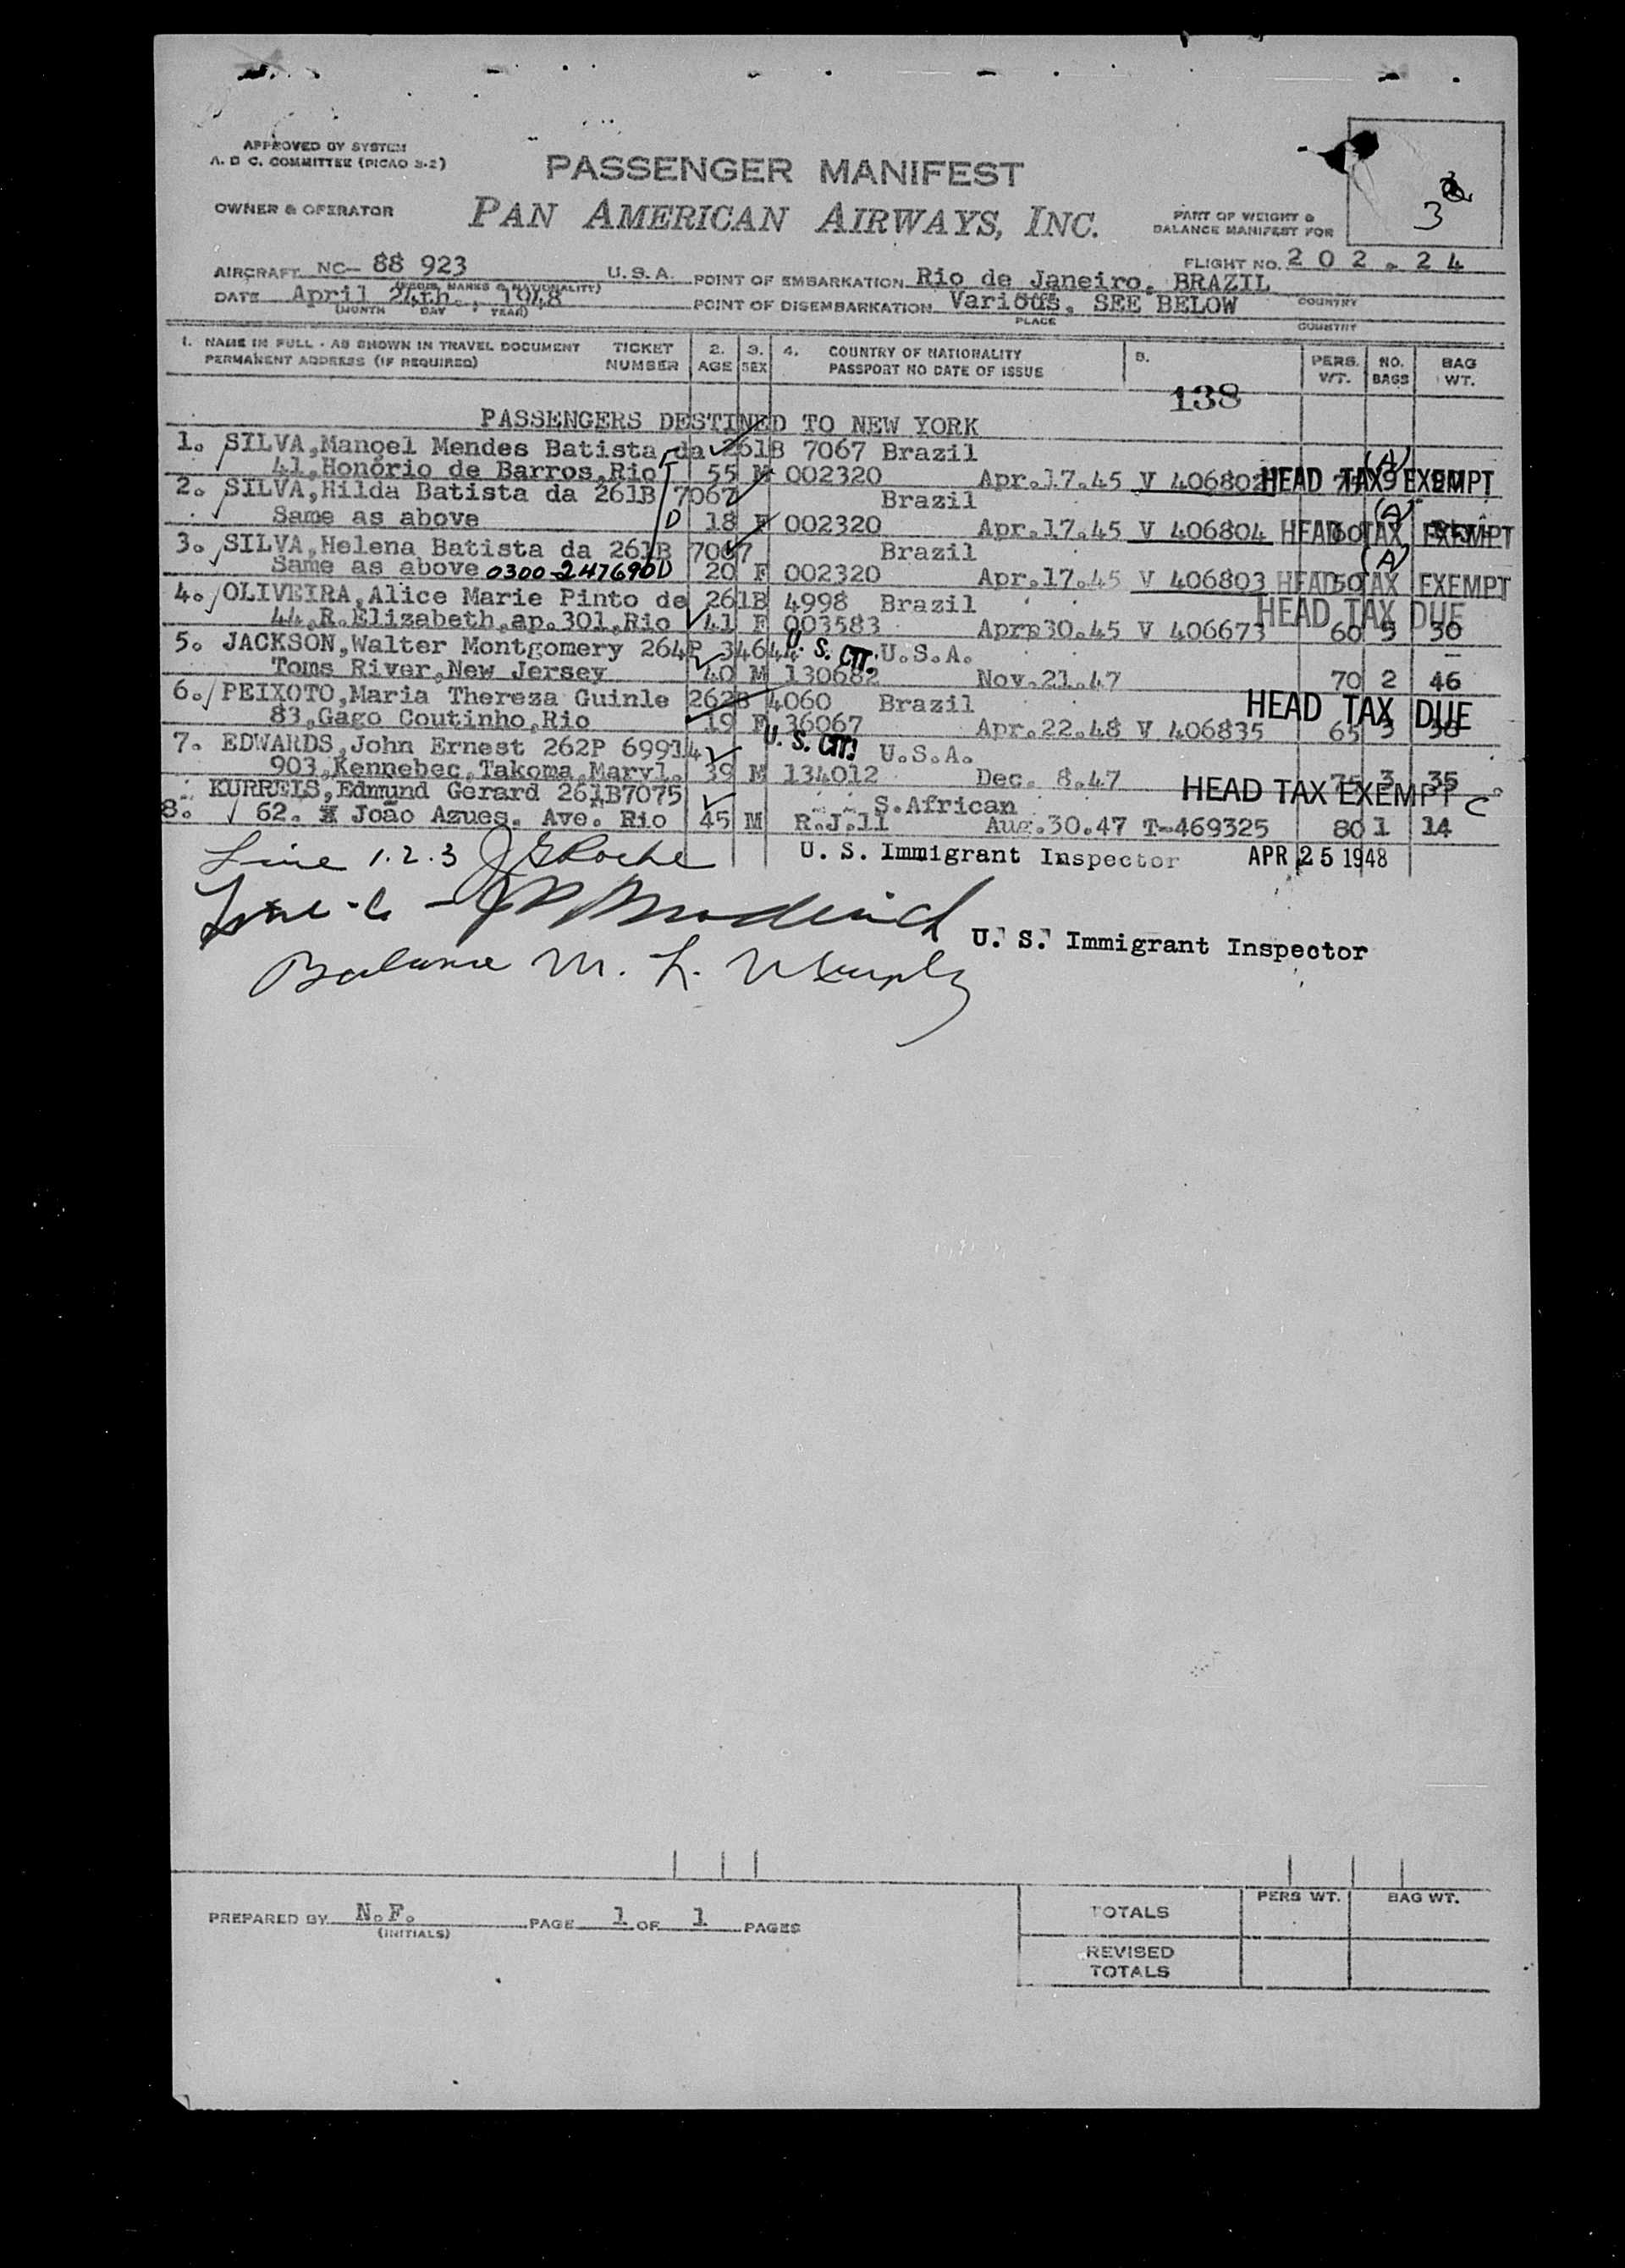 APPROVED BY SYSTEM
A. D C. COMMITTEE (PICAO 3-2)
PASSENGER MANIFEST
OWNER & OPERATOR
PAN AMERICAN AIRWAYS, INC.
PART OF WEIGHT &
BALANCE MANIFEST FOR
3
FLIGHT NO. 202-24
AIRCRAFT NC- 88 923 U.S.A. POINT OF EMBARKATION Rio de Janeiro, BRAZIL
(REGIS. MARKS & NATIONALITY)
DATE April 24th., 1948 POINT OF DISEMBARKATION Various, SEE BELOW COUNTRY
(MONTH DAY YEAR) PLACE COUNTRY
1. NAME IN FULL - AS SHOWN IN TRAVEL DOCUMENT TICKET 2. 3. 4. COUNTRY OF NATIONALITY 5. PERS. NO. BAG
PERMANENT ADDRESS (IF REQUIRED) NUMBER AGE SEX PASSPORT NO DATE OF ISSUE WT. BAGS WT.
138
PASSENGERS DESTINED TO NEW YORK
1. SILVA,Manoel Mendes Batista da 261B 7067 Brazil
41,Honório de Barros,Rio 55 M 002320 Apr.17.45 V 406802 HEAD TAX EXEMPT (A)
2. SILVA,Hilda Batista da 261B 7067 Brazil
Same as above D 18 F 002320 Apr.17.45 V 406804 HEAD TAX EXEMPT (A)
3. SILVA,Helena Batista da 261B 7067 Brazil
Same as above 0300-247690D 20 F 002320 Apr.17.45 V 406803 HEAD TAX EXEMPT (A)
4. OLIVEIRA,Alice Marie Pinto de 261B 4998 Brazil HEAD TAX DUE
44,R.Elizabeth,ap.301,Rio 41 F 003583 Aprp30.45 V 406673 60 30
5. JACKSON,Walter Montgomery 264P 34644 U. S. CIT. U.S.A.
Toms River,New Jersey 40 M 130682 Nov.21.47 70 2 46
6. PEIXOTO,Maria Thereza Guinle 262B 4060 Brazil HEAD TAX DUE
83,Gago Coutinho,Rio 19 F 36067 Apr.22.48 V 406835 65 3
7. EDWARDS,John Ernest 262P 69914 U. S. CIT. U.S.A.
903,Kennebec,Takoma,Maryl. 39 M 134012 Dec. 8.47 75 3 35
KURREIS,Edmund Gerard 261B7075 S.African HEAD TAX EXEMPT C
8. 62. João Azues. Ave. Rio 45 M R.J.11 Aug.30.47 T-469325 80 1 14
Line 1.2.3 J G Roche U. S. Immigrant Inspector APR 25 1948
U. S. Immigrant Inspector
Balance M. L. Murphy
PREPARED BY N.F. PAGE 1 OF 1 PAGES
(INITIALS)
PERS WT. BAG WT.
TOTALS
REVISED
TOTALS